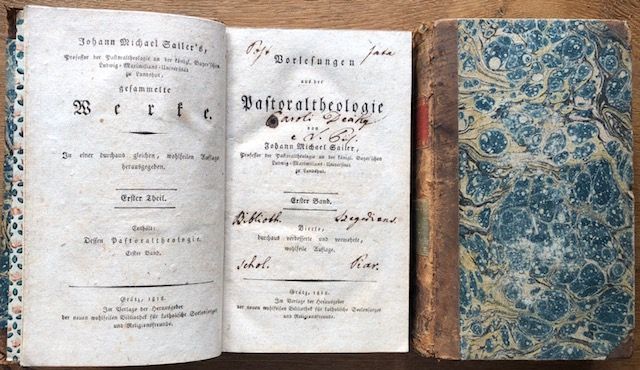 Johann Michael Sailer's,
Professor der Pastoraltheologie an der königl. Bayer'schen
Ludwig-Maximilians-Universität
zu Landshut,
gesammelte
Werke.
In einer durchaus gleichen, wohlfeilen Auflage
herausgegeben.
Erster Theil.
Enthält:
Dessen Pastoraltheologie.
Erster Band.
Grätz, 1818.
Im Verlage der Herausgeber
der neuen wohlfeilen Bibliothek für katholische Seelsorger
und Religionsfreunde.
Post fata
Vorlesungen
aus der
Pastoraltheologie
Caroli
von
Johann Michael Sailer,
Professor der Pastoraltheologie an der königl. Bayer'schen
Ludwig-Maximilians-Universität
zu Landshut.
Erster Band.
Biblioth. Szegediens.
Vierte,
durchaus verbesserte und vermehrte,
wohlfeile Auflage.
schol. Piar.
Grätz, 1818.
Im Verlage der Herausgeber
der neuen wohlfeilen Bibliothek für katholische Seelsorger
und Religionsfreunde.